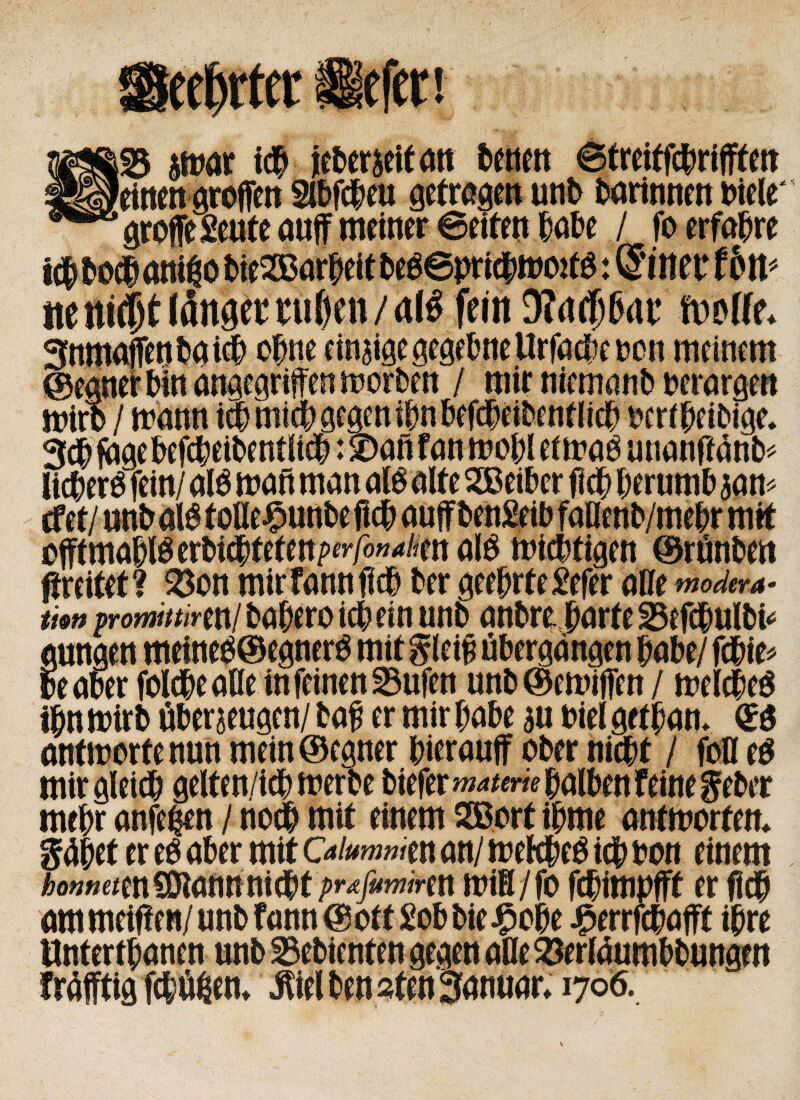 Geehrter Leser!
OB zwar ich jederzeit an denen Streitschrifften
einen grossen Abscheu getragen und darinnen viele
grosse Leute auff meiner Seiten habe / so erfahre
ich doch anitzo die Warheit des Sprichworts: Einer kön-
ne nicht länger ruhen / als sein Nachbar wolle.
Inmassen da ich ohne einzige gegebne Ursache von meinem
Gegner bin angegriffen worden / mir niemand verargen
wird / wann ich mich gegen ihn bescheidentlich vertheidige.
Ich sage bescheidentlich: Dañ kan wohl etwas unanständ-
lichers sein / als wañ man als alte Weiber sich herumb zan-
cket / und als tolle Hunde sich auff den Leib fallend / mehr mit
offtmahls erdichteten personalien als wichtigen Gründen
streitet? Von mir kann sich der geehrte Leser alle modera-
tion promittiren / dahero ich ein und andre harte Beschuldi-
gungen meines Gegners mit Fleiß übergangen habe / schie-
be aber solche alle in seinen Busen und Gewissen / welches
ihn wird überzeugen / daß er mir habe zu viel gethan. Es
antworte nun mein Gegner hierauff oder nicht / soll es
mir gleich gelten / ich werde dieser materie halben keine Feder
mehr ansetzen / noch mit einem Wort ihme antworten.
Fähet er es aber mit Calumnien an / welches ich von einem
honneten Mann nicht præsumiren will / so schimpfft er sich
am meisten / und kann Gott Lob die Hohe Herrschafft ihre
Unterthanen und Bedienten gegen alle Verläumbdungen
kräfftig schützen. Kiel den 2ten Januar. 1706.